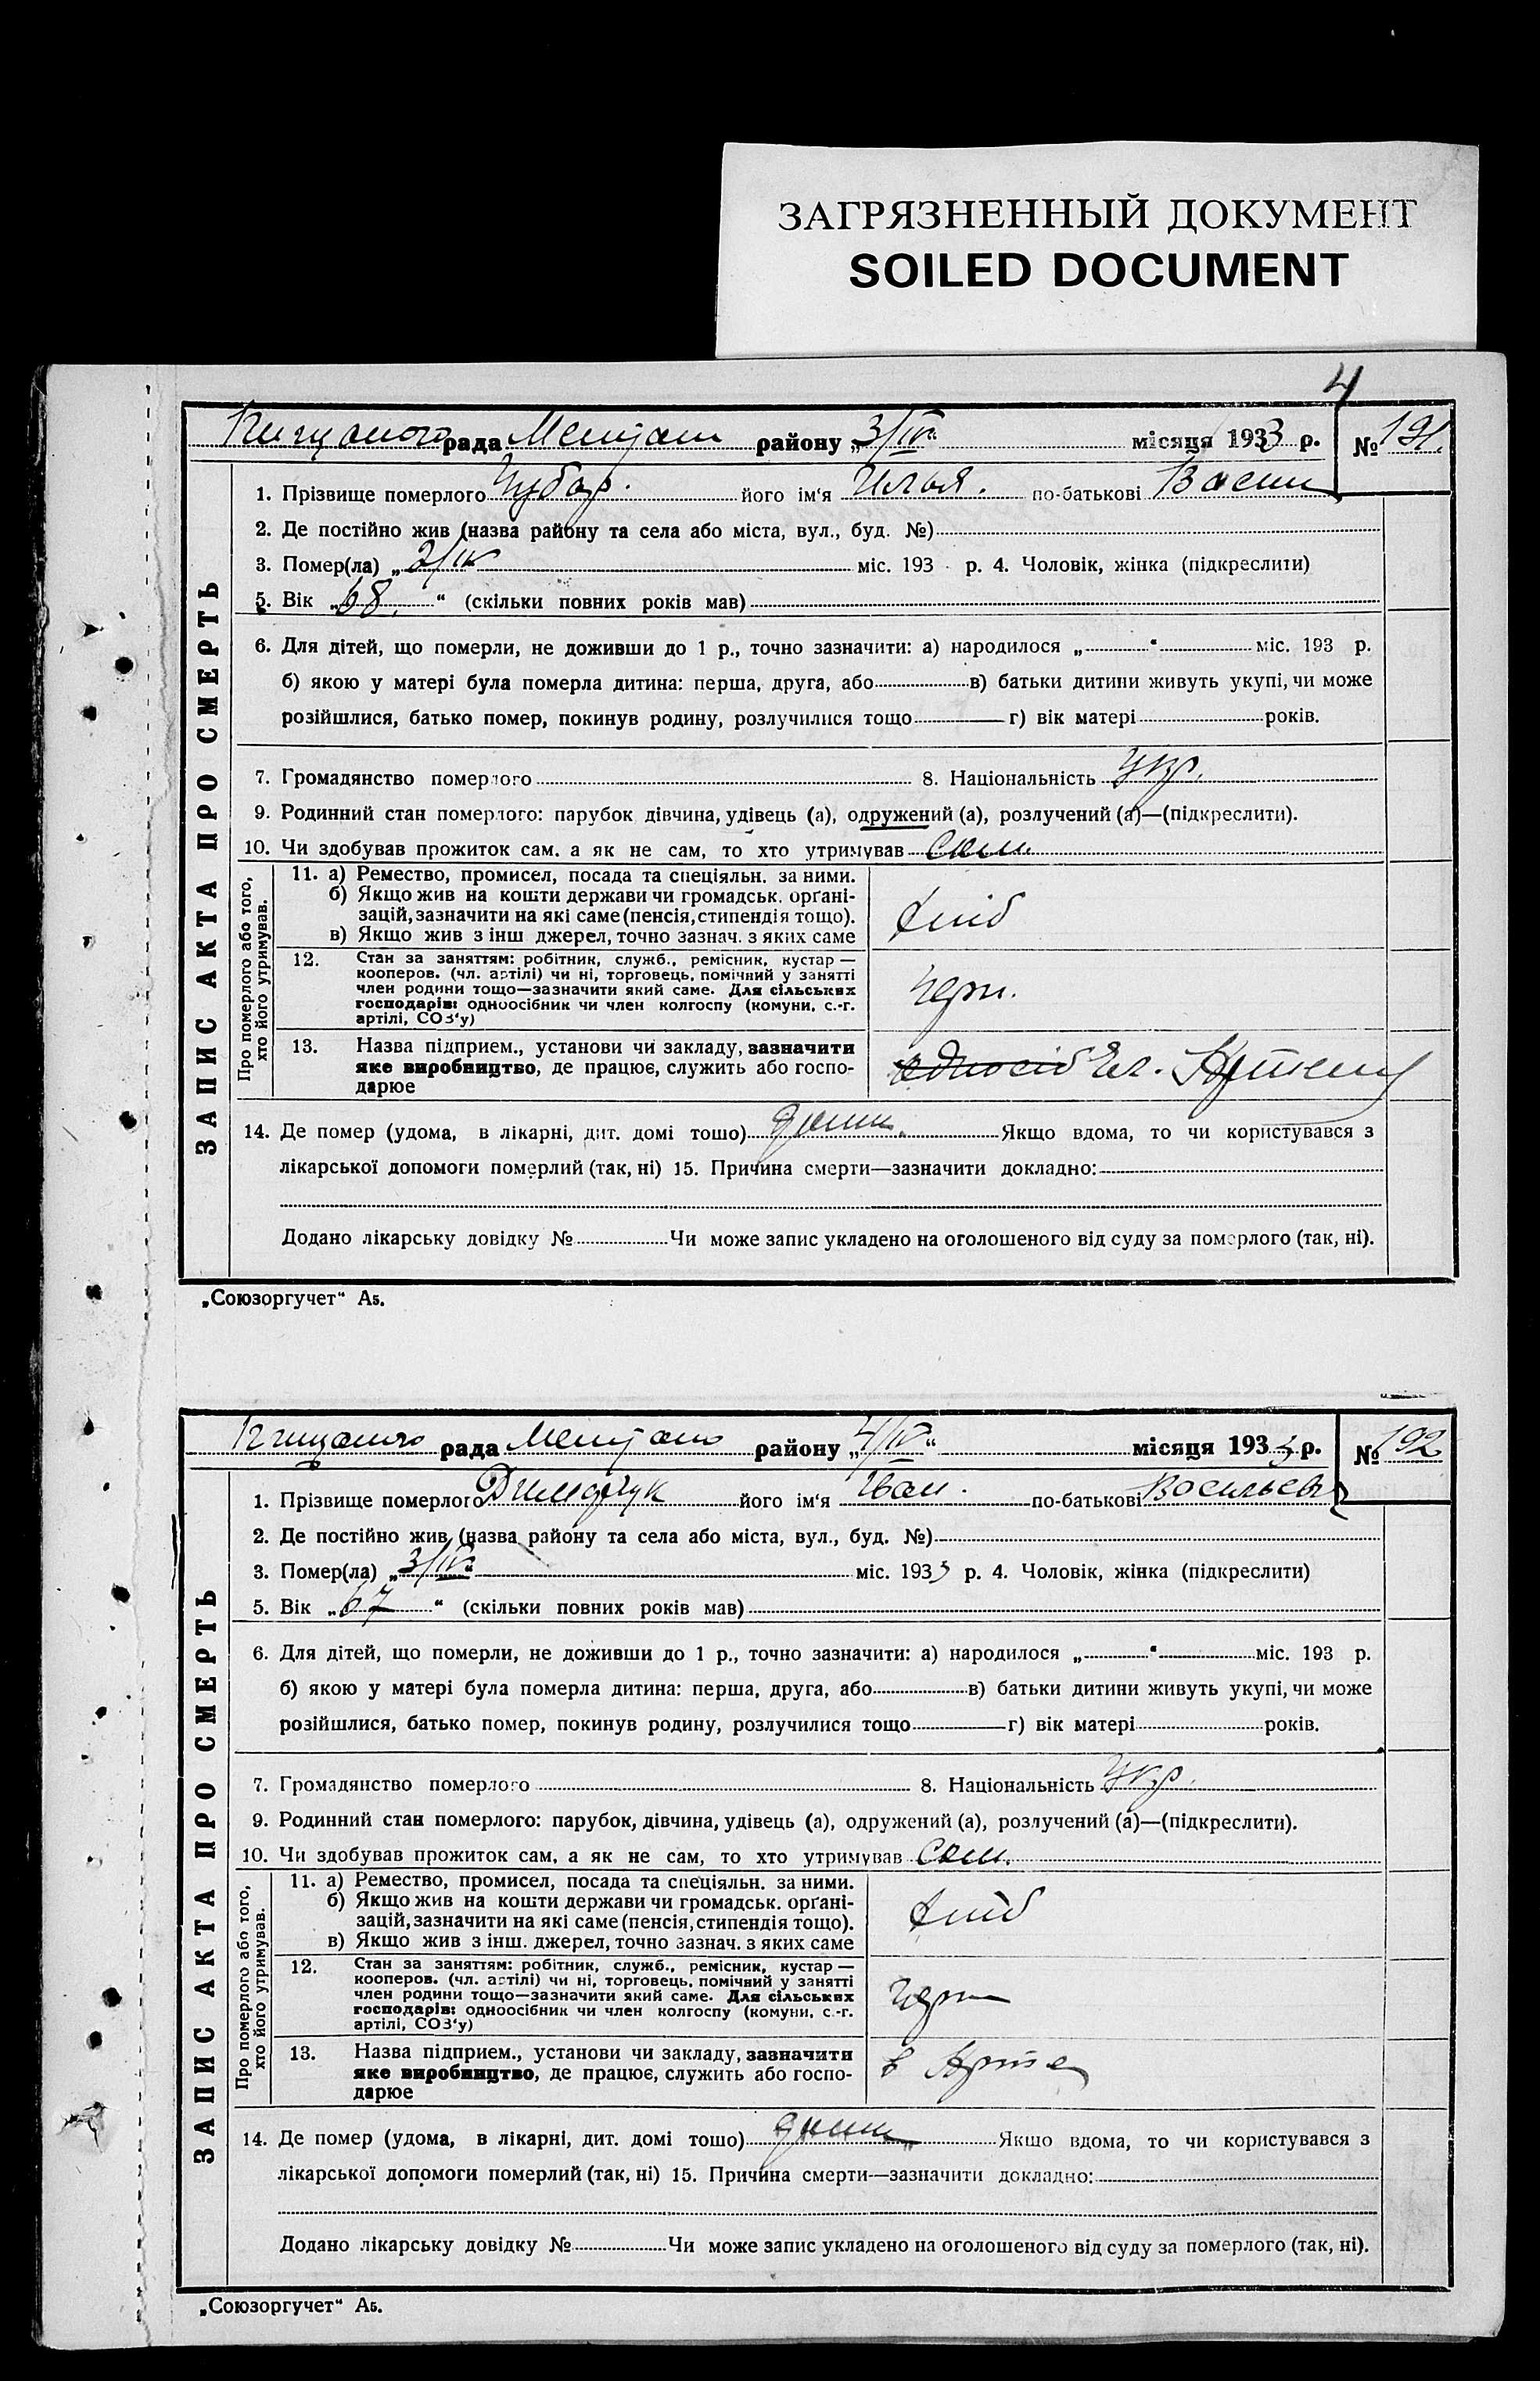 ЗАГРЯЗНЕННЫЙ ДОКУМЕНТ
SOILED DOCUMENT
4
рада район​у „3/IV“ місяця 1933 р. № 191
ЗАПИС АКТА ПРО СМЕРТЬ
1. Прізвище померлого Чубар. його ім‘я Илья. по-батькові Васил
2. Де постійно жив (назва району та села або міста, вул., буд. №)
3. Помер(ла) „2/IV міс. 193 р. 4. Чоловік, жінка (підкреслити)
5. Вік „68.“ (скільки повних років мав)
6. Для дітей, що померли, не доживши до 1 р., точно зазначити: а) народилося „ “ міс. 193 р.
б) якою у матері була померла дитина: перша, друга, або в) батьки дитини живуть укупі, чи може
розійшлися, батько помер, покинув родину, розлучилися тощо г) вік матері років.
7. Громадянство померлого 8. Національність Укр.
9. Родинний стан померлого: парубок дівчина, удівець (а), одружений (а), розлучений (а)—(підкреслити).
10. Чи здобував прожиток сам, а як не сам, то хто утримував Сам.
Про померлого або того, хто його утримував.
11. а) Ремество, промисел, посада та спеціяльн. за ними.
б) Якщо жив на кошти держави чи громадськ. орґані-
зацій, зазначити на які саме (пенсія, стипендія тощо).
в) Якщо жив з інш джерел, точно зазнач. з яких саме
хліб
12. Стан за заняттям: робітник, служб., ремісник, кустар —
кооперов. (чл. артілі) чи ні, торговець, помічний у занятті
член родини тощо—зазначити який саме. Для сільських
господарів: одноосібник чи член колгоспу (комуни, с.-г.
артілі, СОЗ‘у)
13. Назва підприєм., установи чи закладу, зазначити
яке виробництво, де працює, служить або госпо-
дарює
односіб Чл.
14. Де помер (удома, в лікарні, дит. домі тощо) дома. Якщо вдома, то чи користувався з
лікарської допомоги померлий (так, ні) 15. Причина смерти—зазначити докладно:
Додано лікарську довідку № Чи може запис укладено на оголошеного від суду за померлого (так, ні).
„Союзоргучет“ А5.
рада району „4/IV“ місяця 1933 р. № 192
ЗАПИС АКТА ПРО СМЕРТЬ
1. Прізвище померлого його ім‘я Иван. по-батькові Васильев
2. Де постійно жив (назва району та села або міста, вул., буд. №)
3. Помер(ла) „3/IV“ міс. 1933 р. 4. Чоловік, жінка (підкреслити)
5. Вік „67“ (скільки повних років мав)
6. Для дітей, що померли, не доживши до 1 р., точно зазначити: а) народилося „ “ міс. 193 р.
б) якою у матері була померла дитина: перша, друга, або в) батьки дитини живуть укупі, чи може
розійшлися, батько помер, покинув родину, розлучилися тощо г) вік матері років.
7. Громадянство померлого 8. Національність Укр.
9. Родинний стан померлого: парубок, дівчина, удівець (а), одружений (а), розлучений (а)—(підкреслити).
10. Чи здобував прожиток сам, а як не сам, то хто утримував Сам.
Про померлого або того, хто його утримував.
11. а) Ремество, промисел, посада та спеціяльн. за ними.
б) Якщо жив на кошти держави чи громадськ. орґані-
зацій, зазначити на які саме (пенсія, стипендія тощо).
в) Якщо жив з інш. джерел, точно зазнач. з яких саме
хліб
12. Стан за заняттям: робітник, служб., ремісник, кустар —
кооперов. (чл. артілі) чи ні, торговець, помічний у занятті
член родини тощо—зазначити який саме. Для сільських
господарів: одноосібник чи член колгоспу (комуни, с.-г.
артілі, СОЗ‘у)
13. Назва підприєм., установи чи закладу, зазначити
яке виробництво, де працює, служить або госпо-
дарює
в Арте
14. Де помер (удома, в лікарні, дит. домі тощо) дома Якщо вдома, то чи користувався з
лікарської допомоги померлий (так, ні) 15. Причина смерти—зазначити докладно:
Додано лікарську довідку № Чи може запис укладено на оголошеного від суду за померлого (так, ні).
„Союзоргучет“ А5.